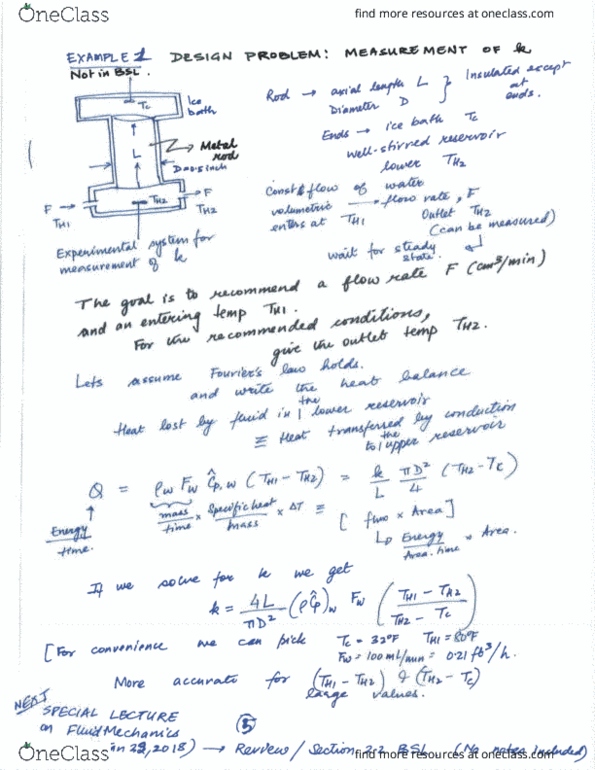 OneClass
find more resources at oneclass.com
EXAMPLE 1 DESIGN PROBLEM: MEASUREMENT OF k
Not in BSL.
Tc
Ice bath
L
Metal rod
D=0.5 inch
F
TH1
TH2
F
TH2
Experimental system for
measurement of k
Rod → axial length L
Diameter D
} Insulated except
at
ends.
Ends → ice bath Tc
well-stirred reservoir
lower TH2
Const flow of water
volumetric → flow rate, F
enters at TH1
Outlet TH2
(can be measured)
wait for steady
state.
The goal is to recommend a flow rate F (cm³/min)
and an entering temp TH1.
For the recommended conditions,
give the outlet temp TH2.
Lets assume Fourier's law holds.
and write the heat balance
Heat lost by fluid in the lower reservoir
≡ Heat transferred by conduction
to the upper reservoir
Q = ρw Fw Ĉp,w (TH1 - TH2) = k/L πD²/4 (TH2 - Tc)
Energy/time.
mass/time × Specific heat/mass × ΔT ≡ [ flux × Area ]
↳ Energy/Area.time × Area.
If we solve for k we get
k = 4L/πD² (ρĈp)w Fw ( TH1 - TH2 / TH2 - Tc )
[For convenience we can pick Tc = 32°F TH1 = 80°F
Fw = 100 ml/min = 0.21 ft³/h.
More accurate for (TH1 - TH2) & (TH2 - Tc)
large values.
NEXT
SPECIAL LECTURE
on Fluid Mechanics
5
2018) → Review / Section 2.2 BSL (No notes included)
OneClass
find more resources at oneclass.com